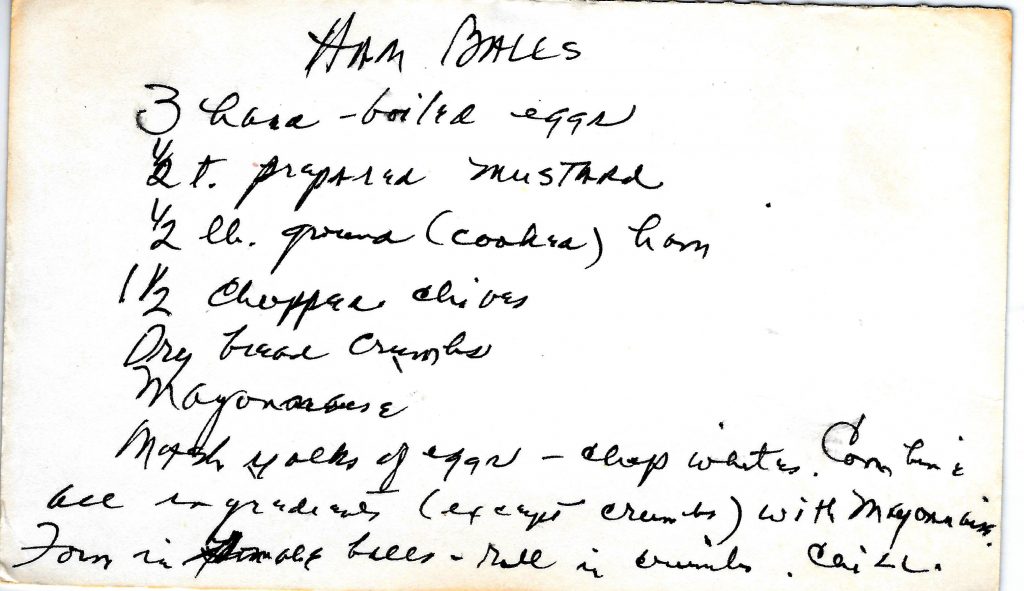 HAM BALLS
3 hard-boiled eggs
1/2 t. prepared MUSTARD
1/2 lb. ground (cooked) ham
1 1/2 chopped chives
Dry bread crumbs
Mayonnaise
Mash yolks of eggs - chop whites. Combine
all ingredients (except crumbs) with Mayonnaise.
Form in small balls - roll in crumbs. Chill.